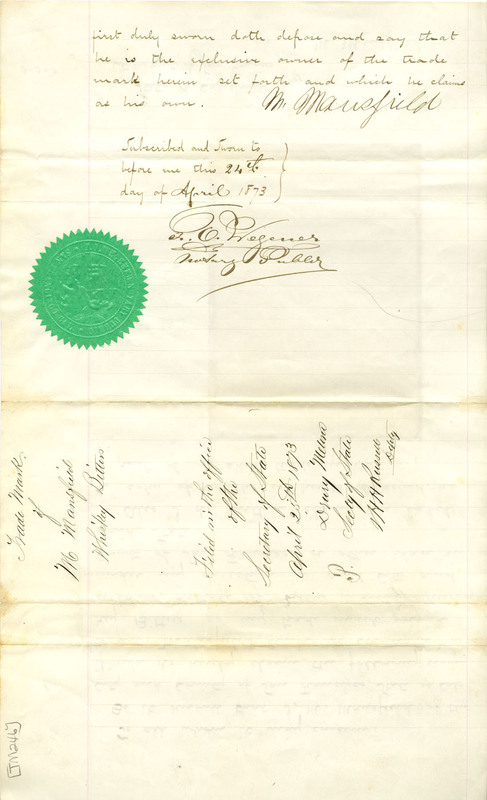 first duly sworn doth depose and say that
he is the exclusive owner of the trade
mark herein set forth and which he claims
as his own. M. Mansfield
Subscribed and Sworn to
before me this 24th
day of April 1873
R. C. Wegener
Notary Public
Trade Mark
of
M. Mansfield
Whiskey Bitters
Filed in the office
of the
Secretary of State
April 25th 1873
Drury Melone
Secy of State
B.
Deputy
[TM246]